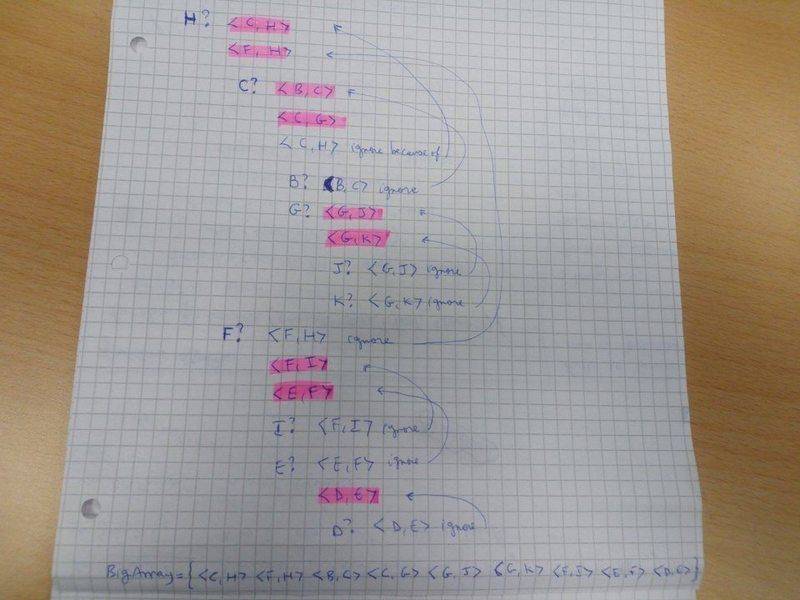 H? <C,H>
<F,H>
C? <B,C>
<C,G>
<C,H> ignore because of
B? <B,C> ignore
G? <G,J>
<G,K>
J? <G,J> ignore
K? <G,K> ignore
F? <F,H> ignore
<F,I>
<E,F>
I? <F,I> ignore
E? <E,F> ignore
<D,E>
D? <D,E> ignore
BigArray={<C,H> <F,H> <B,C> <C,G> <G,J> <G,K> <F,I> <E,F> <D,E>}